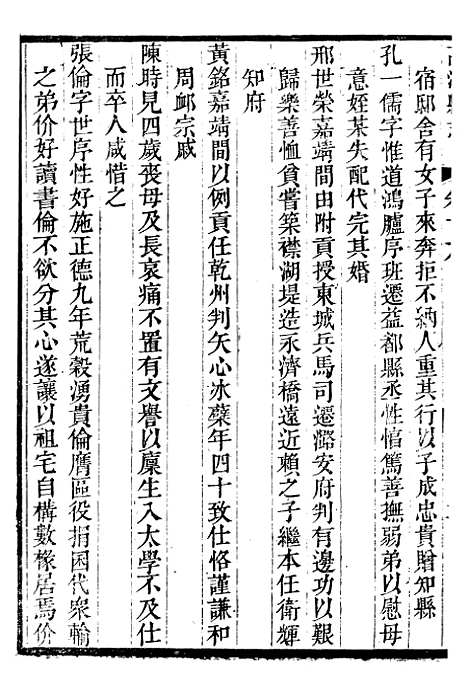 宿邸舍有女子來奔拒不納人重其行以子成忠貴贈知縣
孔一儒字惟道鴻臚序班遷益都縣丞性惇篤善撫弱弟以慰母
意姪某失配代完其婚
邢世榮嘉靖間由附貢授東城兵馬司遷潞安府判有邊功以艱
歸樂善恤貧嘗築襟湖堤造永濟橋遠近賴之子繼本任衛輝
知府
黃銘嘉靖間以例貢任乾州判矢心冰蘗年四十致仕恪謹謙和
周卹宗戚
陳時見四歲喪母及長哀痛不置有文譽以廩生入太學不及仕
而卒人咸惜之
張倫字世序性好施正德九年荒穀湧貴倫膺區役捐囷代衆輸
之弟价好讀書倫不欲分其心遂讓以祖宅自構數椽居焉价